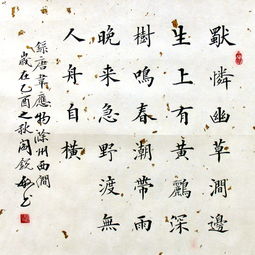 憐幽草澗邊
生上有黃鸝深
樹鳴春潮帶雨
晚来急野渡無
人舟自橫
錄唐韋應物滁州西澗
歲在乙酉之秋